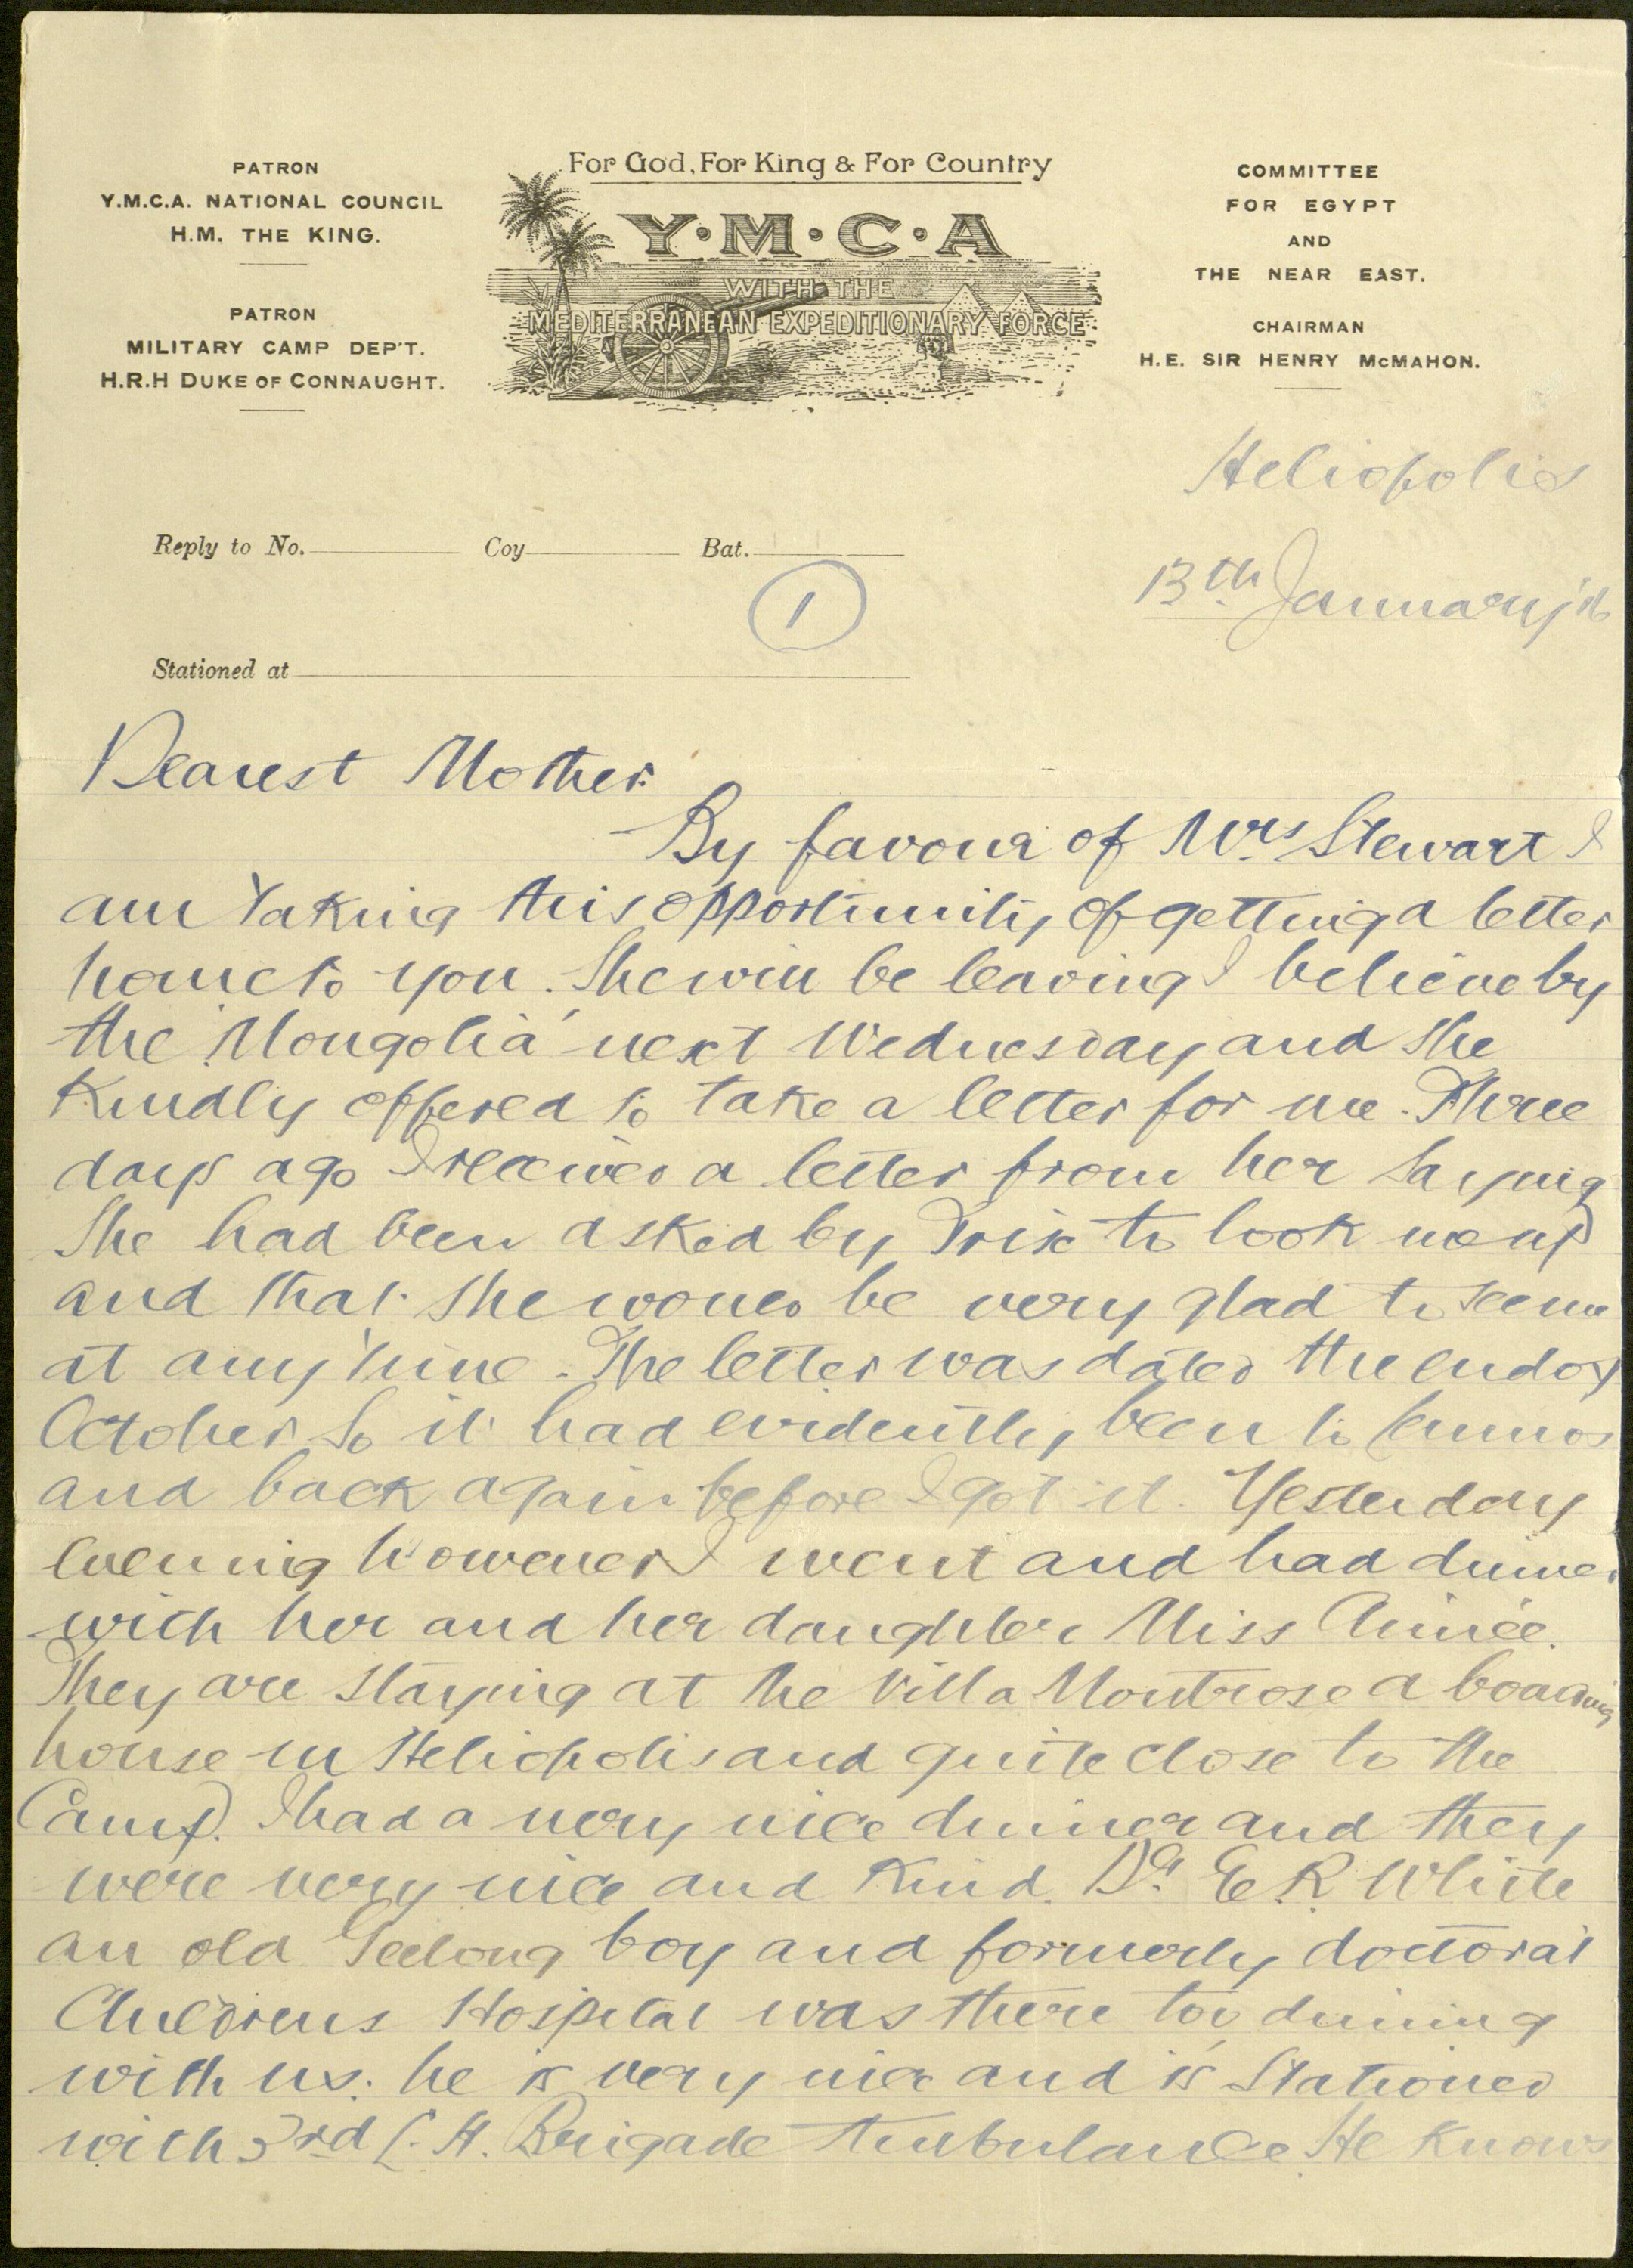 PATRON
Y.M.C.A. NATIONAL COUNCIL
H.M. THE KING.
PATRON
MILITARY CAMP DEP'T.
H.R.H DUKE OF CONNAUGHT.
For God, For King & For Country
Y·M·C·A
WITH THE
MEDITERRANEAN EXPEDITIONARY FORCE
COMMITTEE
FOR EGYPT
AND
THE NEAR EAST.
CHAIRMAN
H.E. SIR HENRY McMAHON.
Heliopolis
Reply to No. Coy Bat.
1
13th January '16
Stationed at
Dearest Mother
By favour of Mrs Stewart I
am taking this opportunity of getting a letter
home to you. She will be leaving I believe by
the 'Mongolia' next Wednesday and she
kindly offered to take a letter for me. Three
days ago I received a letter from her saying
She had been asked by Trix to look me up
and that she would be very glad to see me
at any time. The letter was dated the end of
October so it had evidently been to Lemnos
and back again before I got it. Yesterday
evening however I went and had dinner
with her and her daughter Miss Aimée.
They are staying at the Villa Montrose a boarding
house in Heliopolis and quite close to the
Camp. I had a very nice dinner and they
were very nice and kind. Dr. E. R. White
an old Geelong boy and formerly doctor at
Childrens Hospital was there too dining
with us. he is very nice and is stationed
with 3rd L. H. Brigade Ambulance He knows